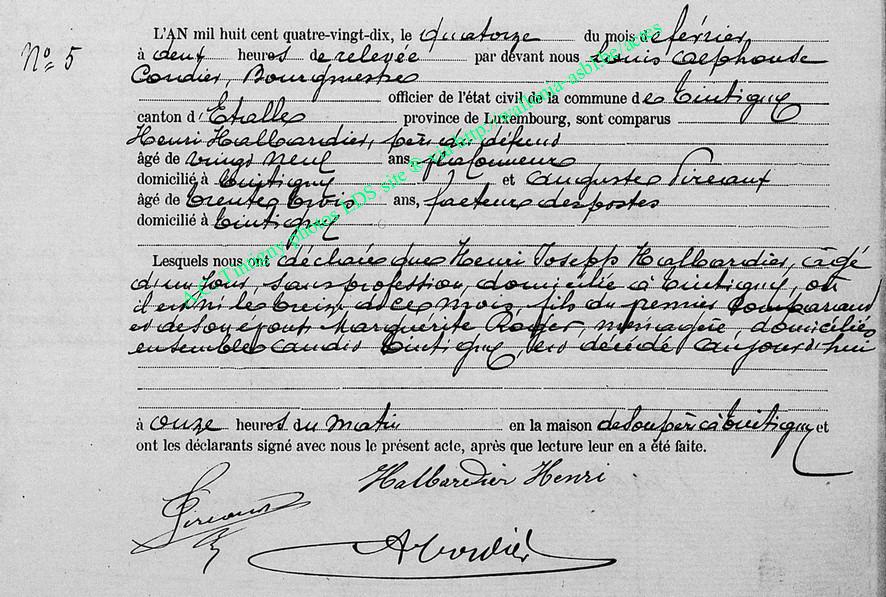 N° 5
L'AN mil huit cent quatre-vingt-dix, le Quatorze du mois de février
à deux heures de relevée par devant nous Louis Alphonse
Cordier, Bourgmestre
officier de l'état civil de la commune de Tintigny
canton d'Etalle province de Luxembourg, sont comparus
Henri Halbardier, père du défunt
âgé de vingt neuf ans, plafonneur
domicilié à Tintigny et Auguste Pireaux
âgé de trente trois ans, facteur des postes
domicilié à Tintigny
Lesquels nous ont déclaré que Henri Joseph Halbardier, âgé
d'un jour, sans profession, domicilié à Tintigny, où
il est né le treize de ce mois, fils du premier comparant
et de son épouse Marguerite Roger, ménagère, domiciliés
ensemble audit Tintigny, est décédé aujourd'hui
à onze heures du matin en la maison de son père à Tintigny et
ont les déclarants signé avec nous le présent acte, après que lecture leur en a été faite.
Halbardier Henri
Pireaux
A Cordier
A.C. Tintigny photos LDS site @ via http://luxfamnia-asbl.be/actes